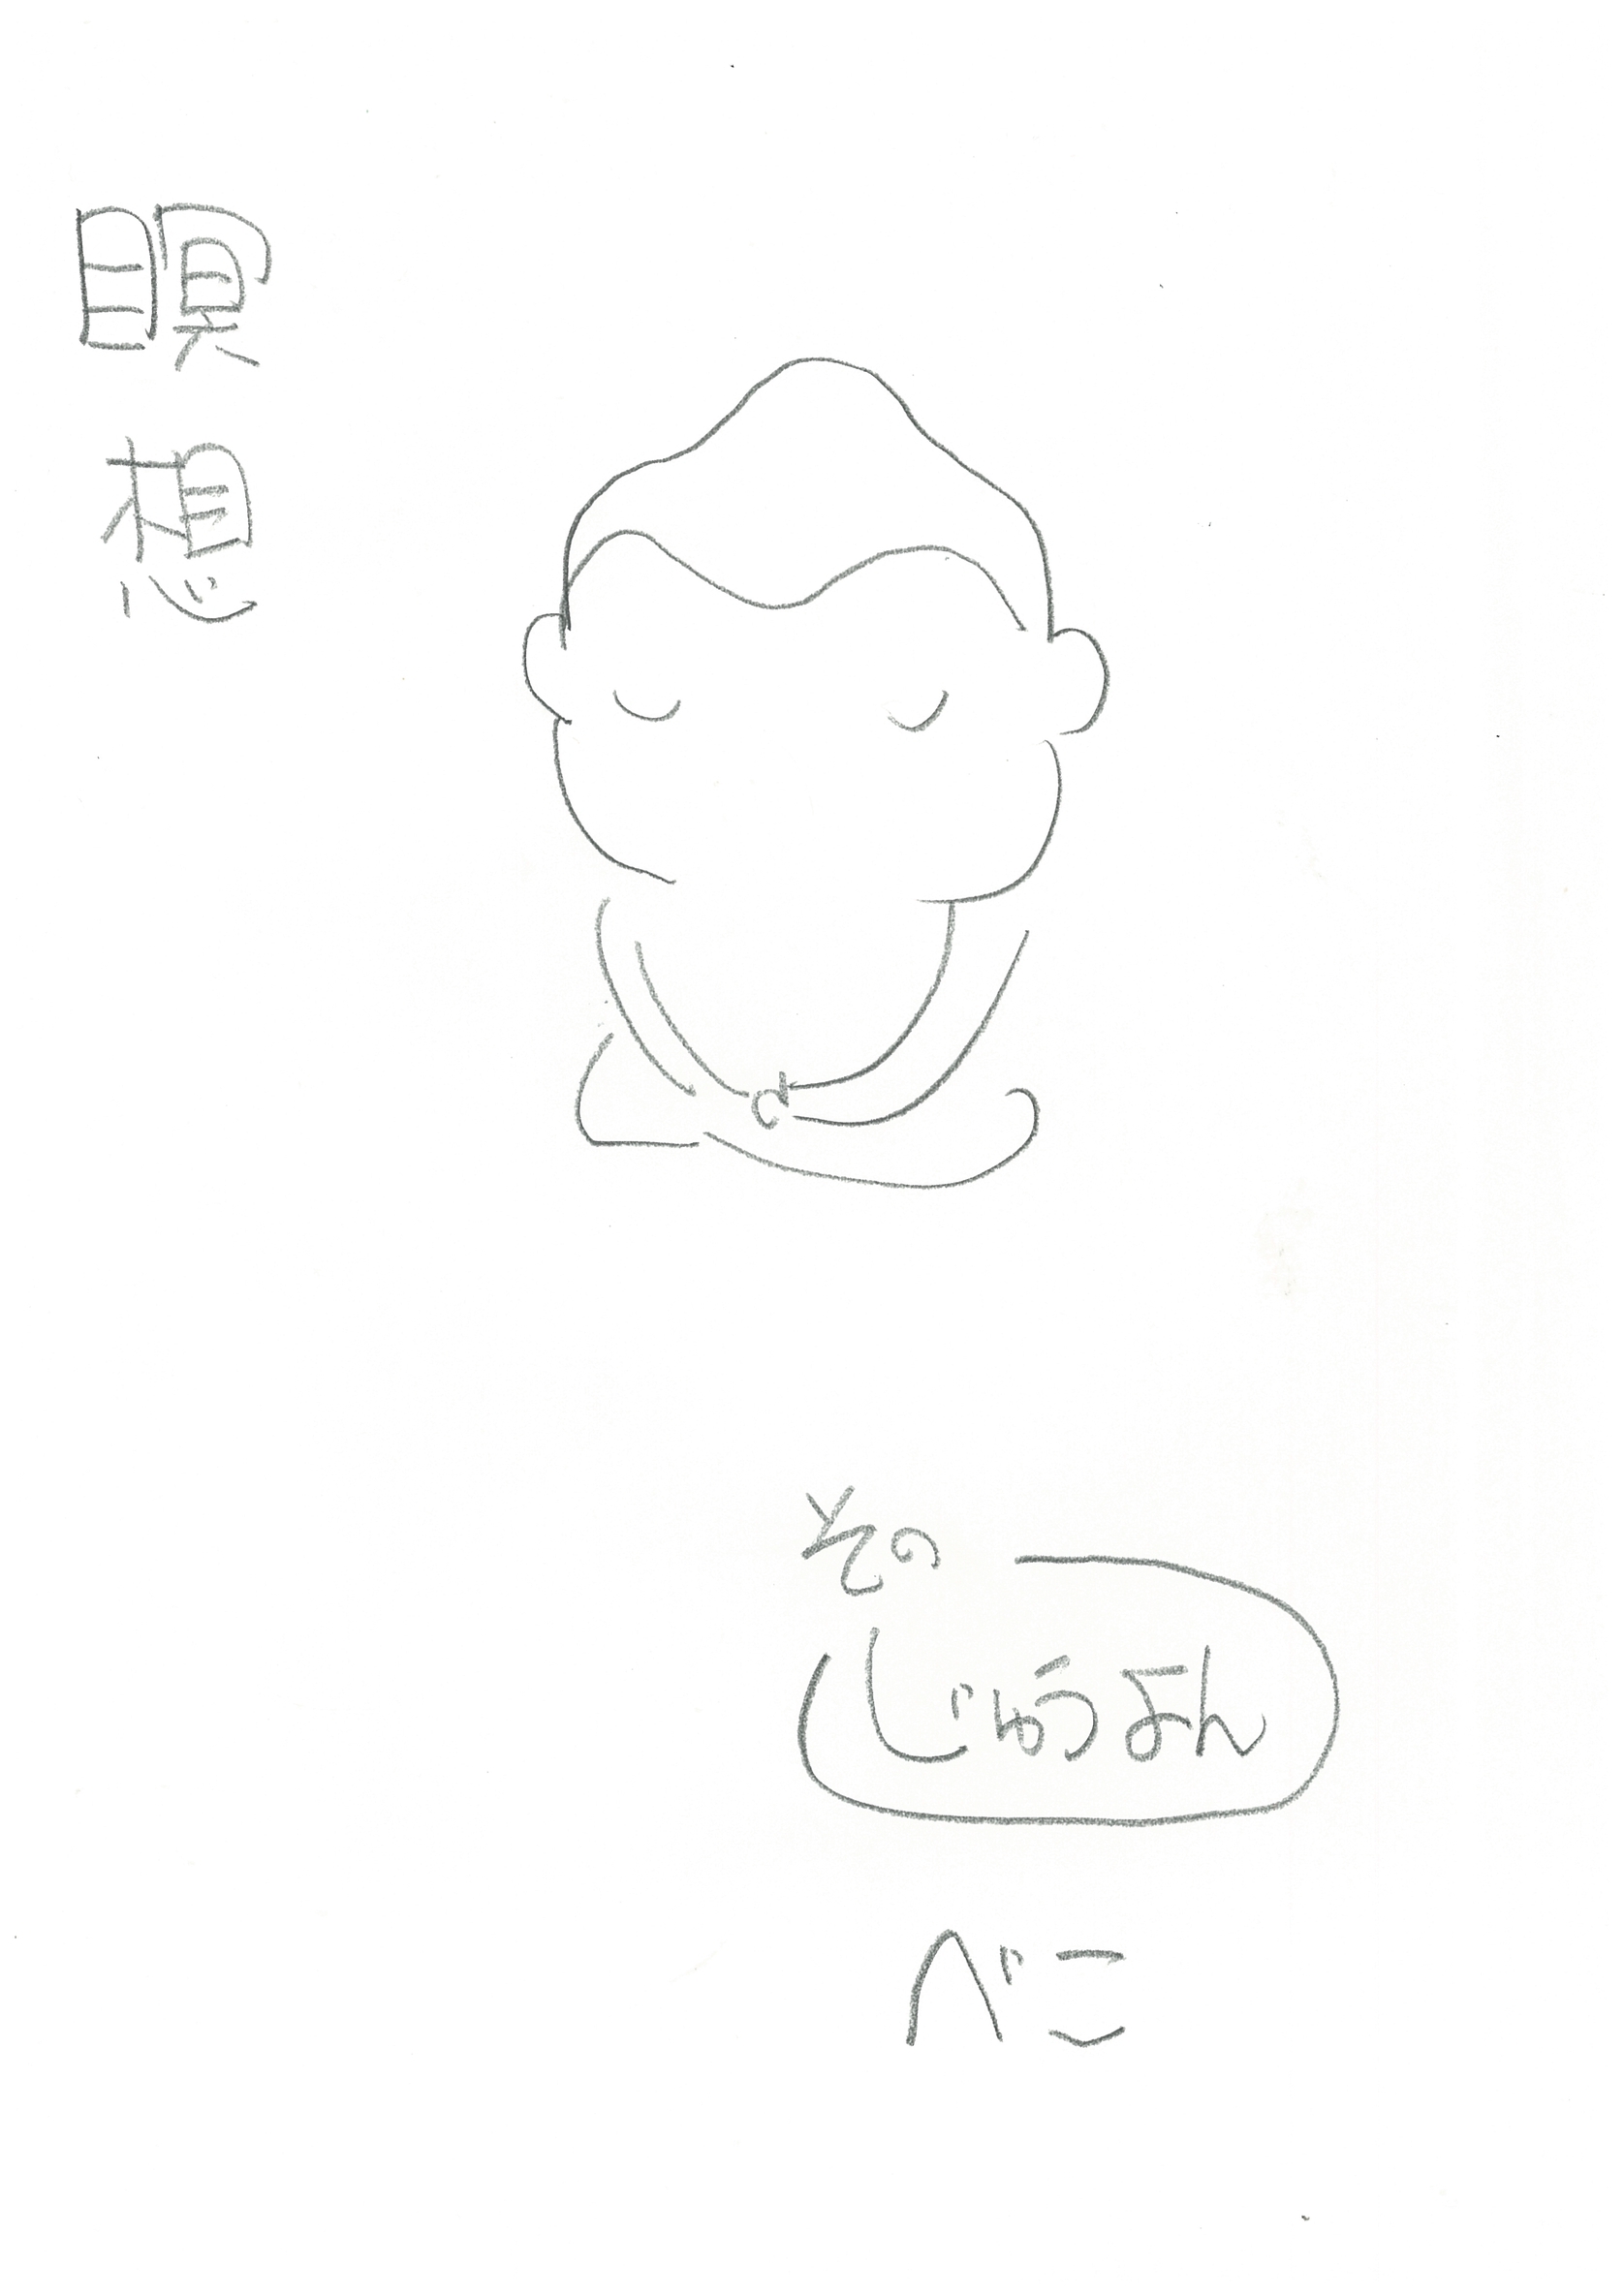 瞑想
その
じゅうよん
べこ